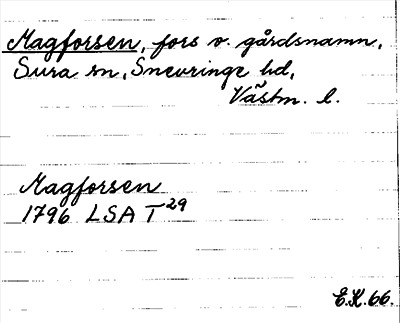 Magforsen, fors o. gårdsnamn,
Sura sn, Snevringe hd,
Västm. l.
Magforsen
1796 LSA T 29
E.K. 66.